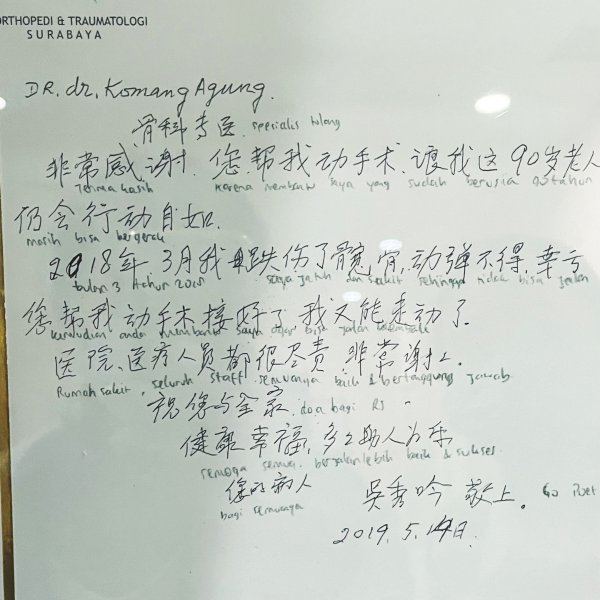 ORTHOPEDI & TRAUMATOLOGI
SURABAYA
DR. dr. Komang Agung.
骨科专医. spesialis tulang
非常感谢. 您帮我动手术. 让我这90岁老人
Terima kasih karena membantu saya yang sudah berusia 90 tahun
仍会行动自如.
masih bisa bergerak
2018年3月我跌伤了髋骨, 动弹不得, 幸亏
bulan 3 tahun 2018 saya jatuh dan sakit sehingga tidak bisa jalan
您帮我动手术接好了, 我又能走动了.
kemudian anda membantu saya agar bisa jalan kembali
医院、医疗人员都很尽责. 非常谢之.
Rumah sakit, seluruh staff semuanya baik & bertanggung jawab
祝您与全家. doa bagi RS
健康幸福, 多之助人为乐
semoga semua berjalan lebih baik & sukses
您的病人 吴秀吟 敬上. Go
bagi semuanya
2019. 5. 14日.